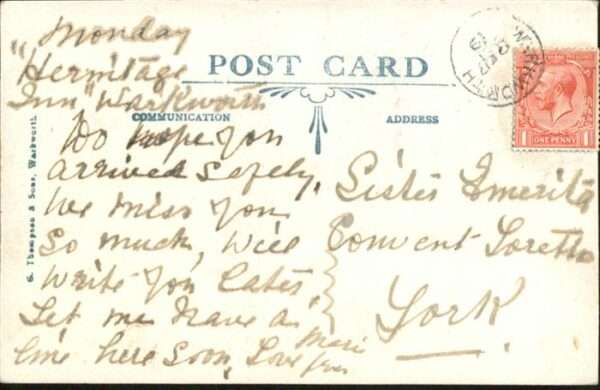 Monday
"Hermitage
Inn" Warkworth
POST CARD
COMMUNICATION
ADDRESS
Do hope you
arrived safely,
we miss you
so much, will
write you later,
Let me have a
line here soon, Love
Sister Emerita
Convent Loretto
York
G. Thompson & Sons, Warkworth.
WARKWORTH
SP
ONE PENNY
1
1